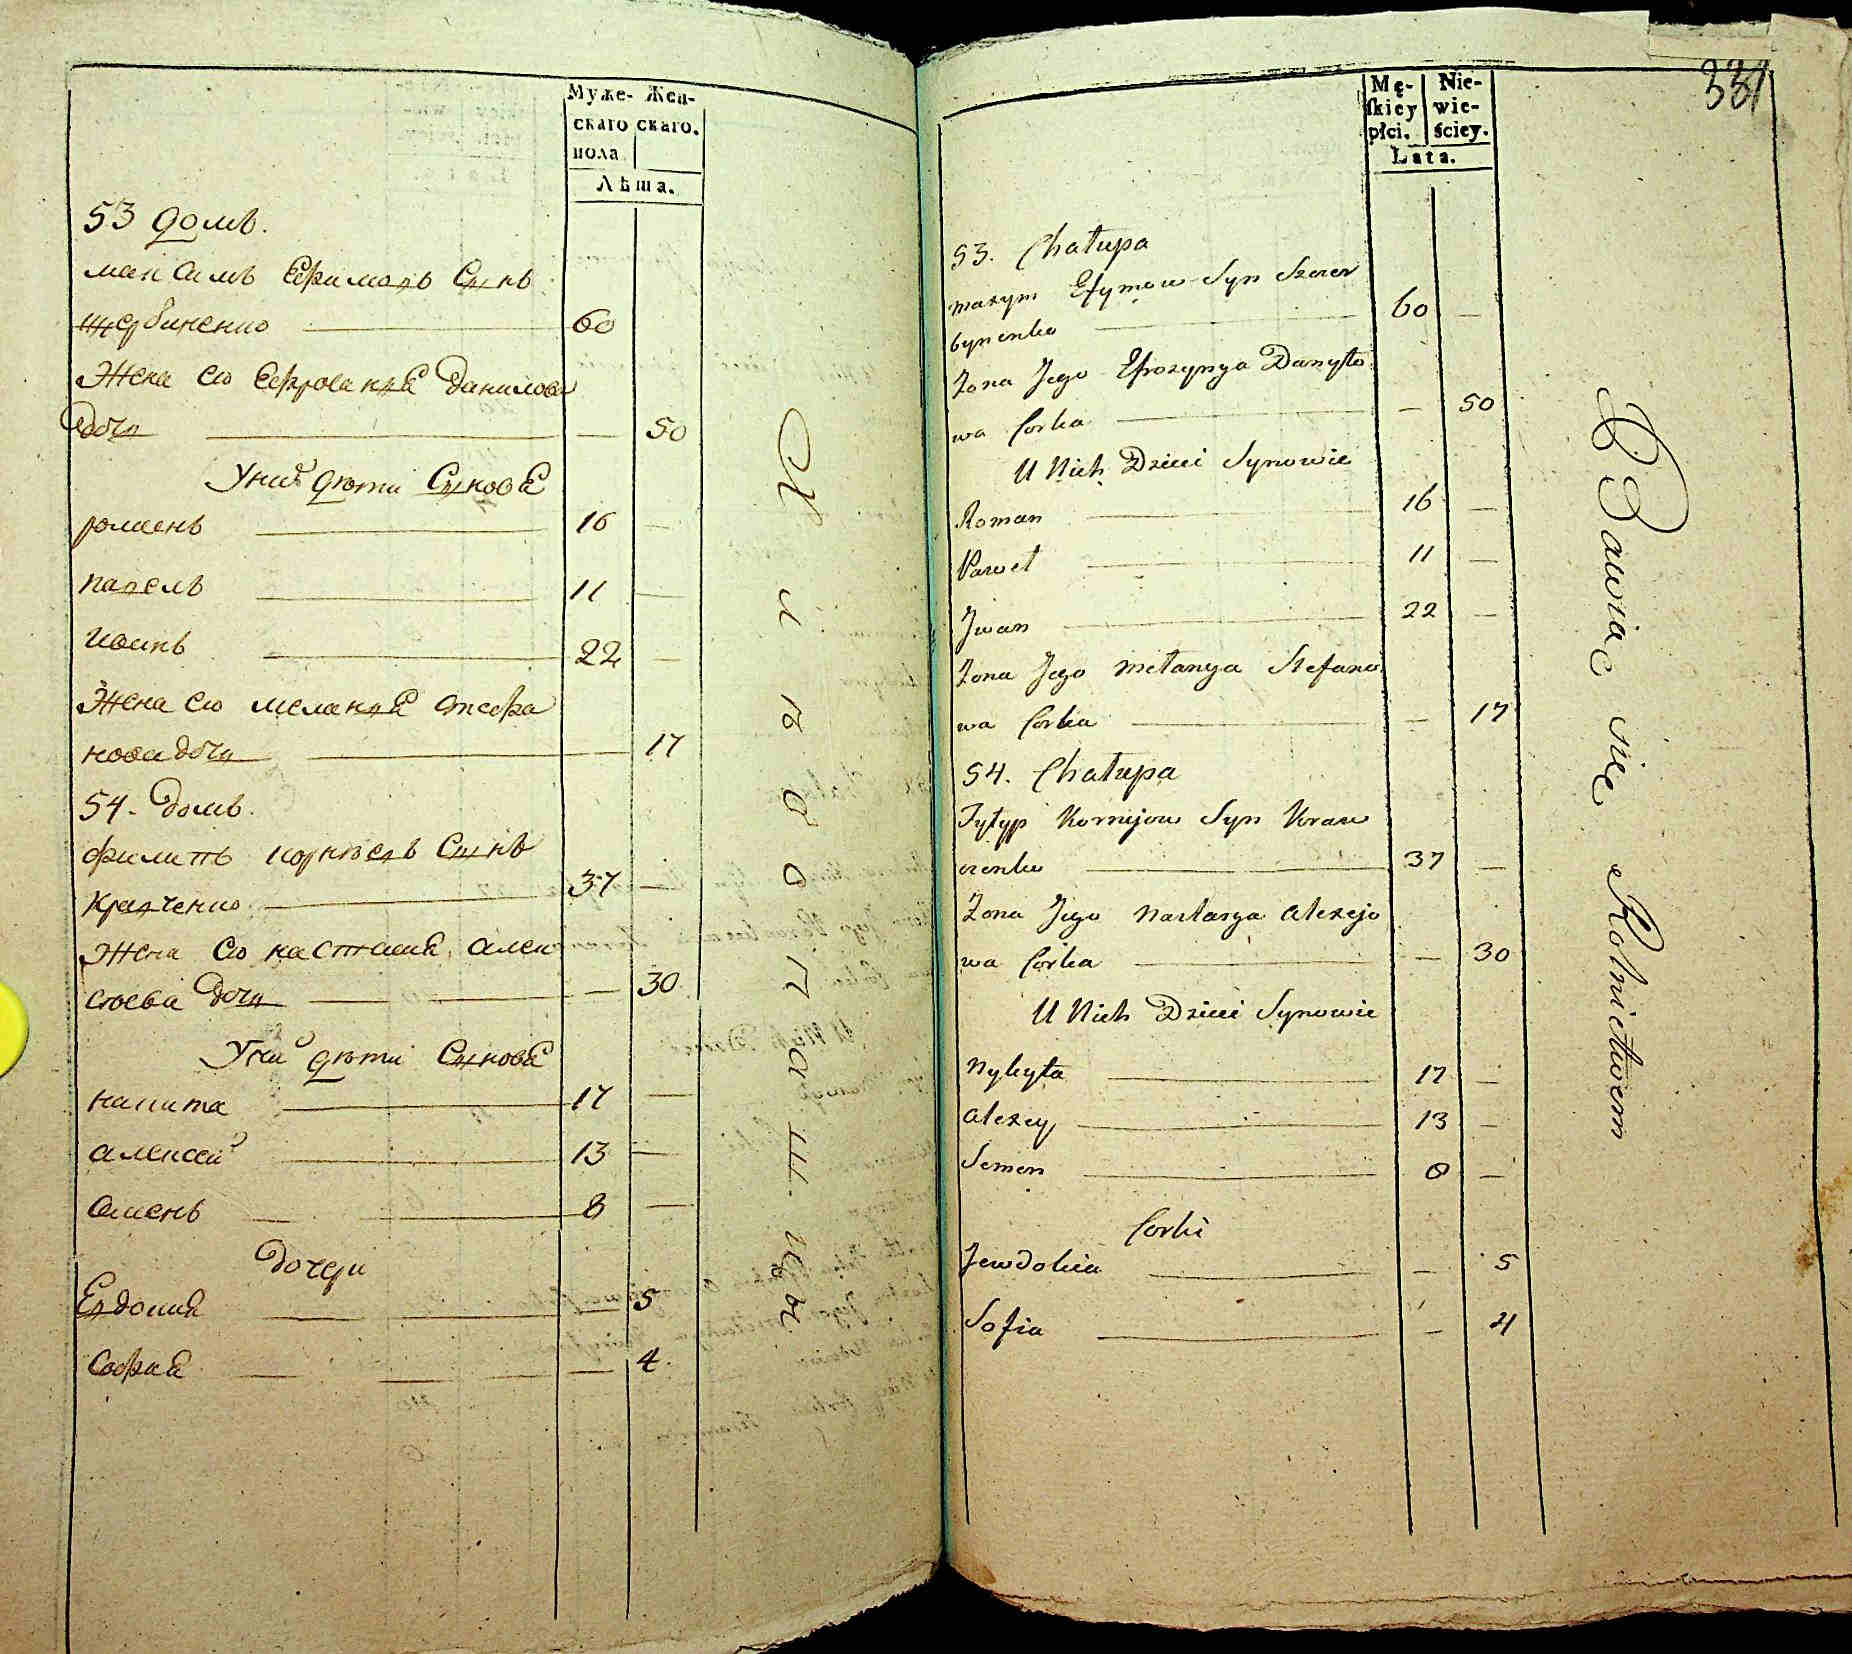 Муже- Жен-
скаго скаго.
пола
Лѣта.
53 домъ.
максимъ Ефимовъ Сынъ
щербиненко 60
Жена его Ефросиния Данилова
дочь — 50
У них дѣти Сыновя
роменъ 16 —
павелъ 11 —
иванъ 22 —
Жена его мелания стефа
нова дочь — 17
54. домъ.
филипъ корнѣевъ Сынъ
кравченко 37 —
Жена его настасия алек
сѣева дочь — 30
У них дѣти Сыновя
никита 17 —
алексей 13 —
семенъ 8 —
дочери
Евдокия — 5
София — 4.
Хлѣбопашцы
331
Mę- Nie-
skiey wie-
płci. ściey.
Lata.
53. Chałupa
maxym Efymow Syn Szczer
bynenko 60 —
Zona Jego Efrozynya Danyło
wa Corka — 50
U Nich Dzieci Synowie
Roman 16 —
Paweł 11 —
Jwan 22 —
Zona Jego Mełanya Stefano
wa Corka — 17
54. Chałupa
Fyłyp Kornijow Syn Kraw
czenko 37 —
Zona Jego Nastasya Alexejo
wa Corka — 30
U Nich Dzieci Synowie
Nykyta 17 —
Alexey 13 —
Semen 8 —
Corki
Jewdokia — 5
Sofia — 4
Bawiąc się Rolnictwem